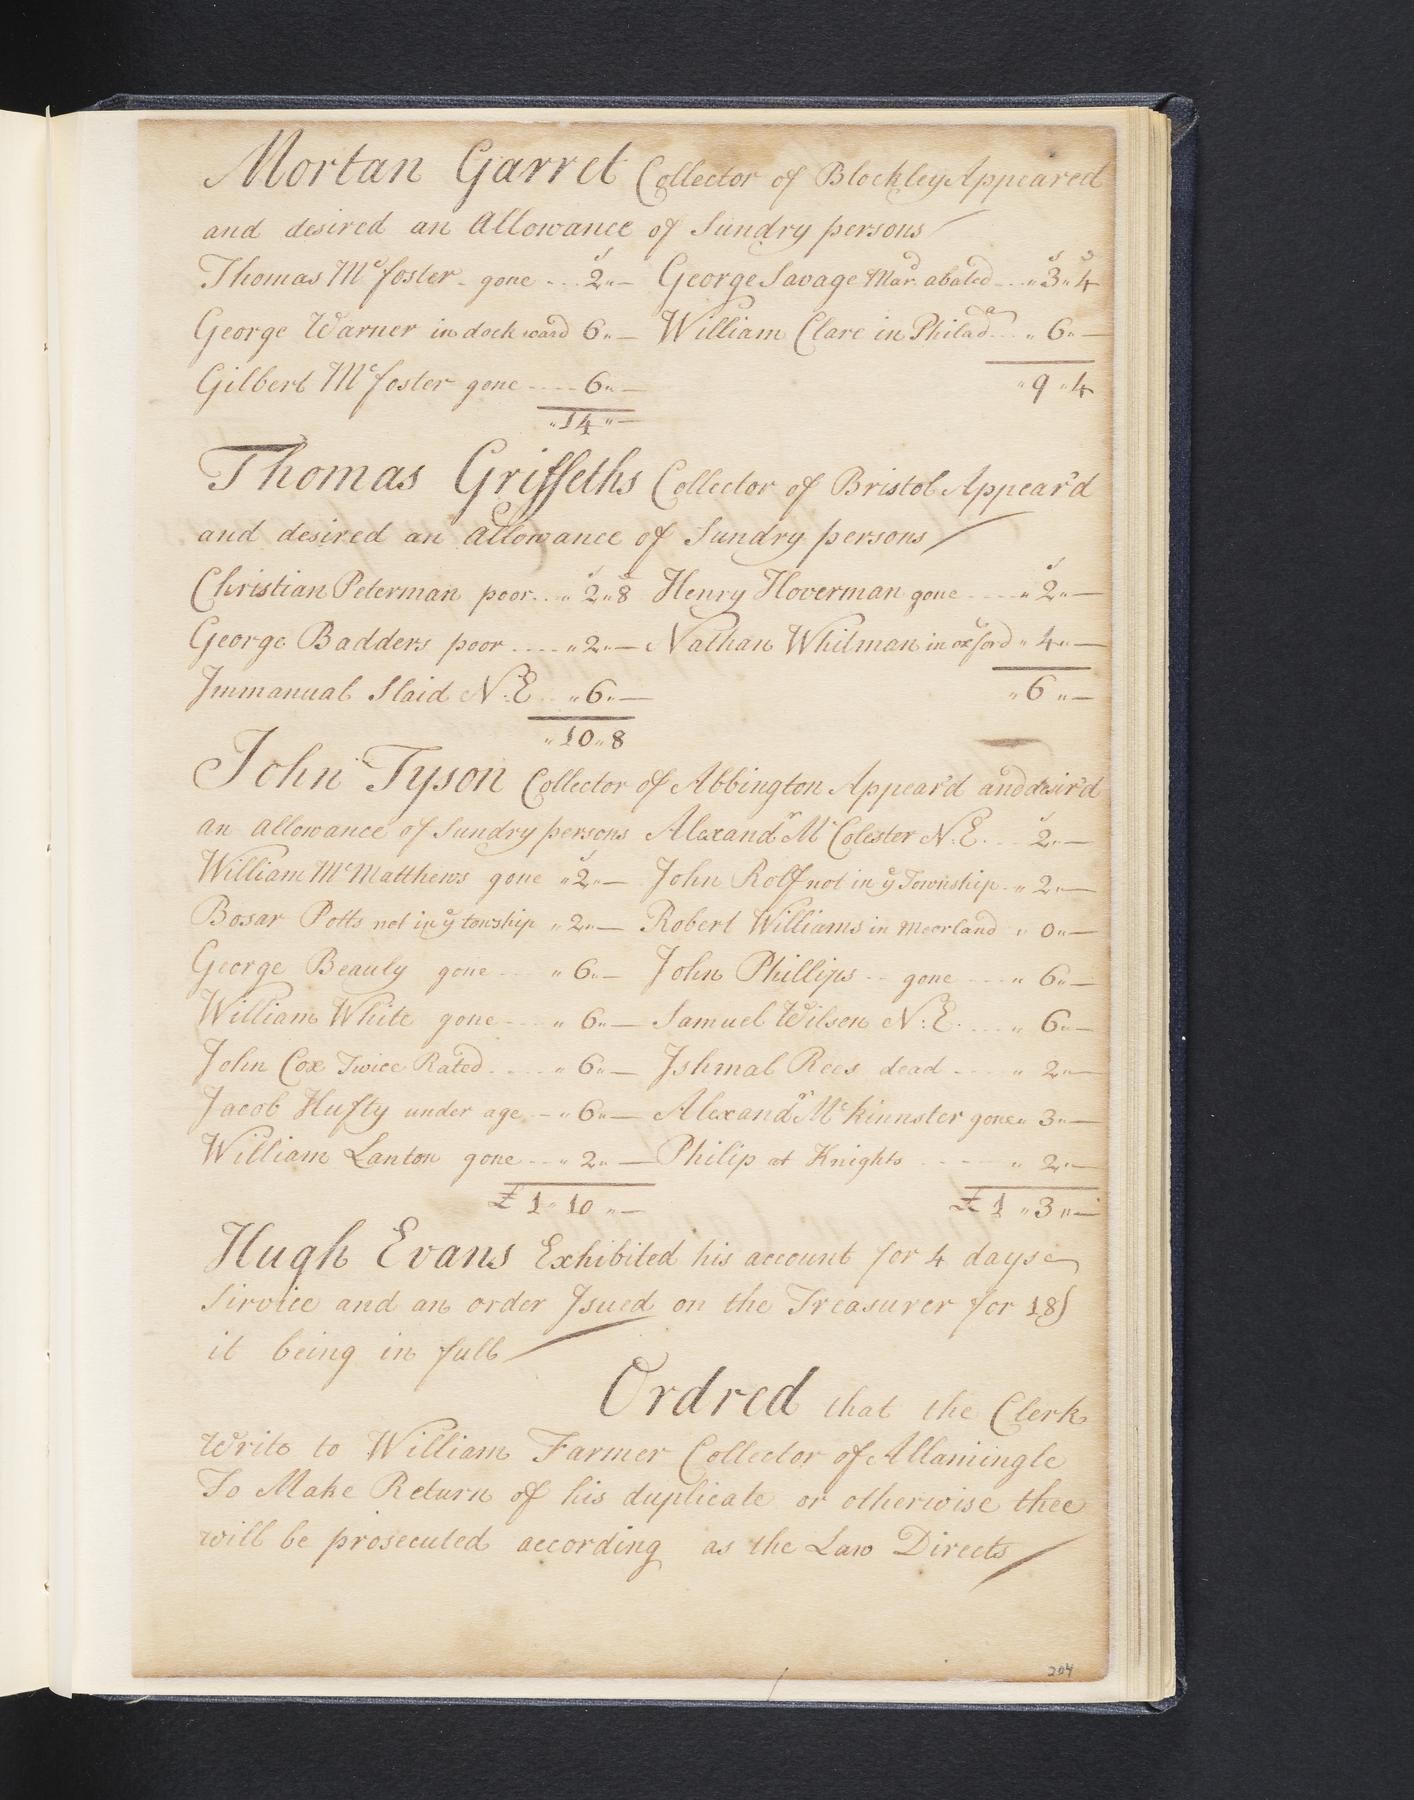 Mortan Garret Collector of Blockley Appeared
and desired an Allowance of Sundry persons
Thomas Mcfoster gone ... 2 "— George Savage Mard. abated ... " 3 " 4
George Warner in dock ward 6 "— William Clare in Philada ... " 6 "—
Gilbert Mcfoster gone ..... 6 "— " 9 " 4
" 14 "—
Thomas Griffeths Collector of Bristol Appear'd
and desired an allowance of Sundry persons
Christian Peterman poor ... " 2 " 8 Henry Hoverman gone ..... " 2 "—
George Badders poor ..... " 2 "— Nathan Whitman in oxford " 4 "—
Immanual Slaid N:E ... " 6 "— " 6 "—
" 10 " 8
John Tyson Collector of Abbington Appear'd and desir'd
an allowance of Sundry persons Alexandr Mc Colester N:E ... 2 "—
William McMatthews gone " 2 "— John Rolf not in ye Township " 2 "—
Bosar Potts not in ye tonship " 2 "— Robert Williams in moorland " 0 "—
George Beauly gone ... " 6 "— John Phillips ... gone .... " 6 "—
William White gone ... " 6 "— Samuel Wilson N:E .... " 6 "—
John Cox Twice Rated .... " 6 "— Ishmal Rees dead .... " 2 "—
Jacob Hufty under age - " 6 "— Alexandr Mckinnster gone " 3 "—
William Lanton gone ... " 2 "— Philip at Knights .... " 2 "—
£ 1 " 10 "— £ 1 " 3 "—
Hugh Evans Exhibited his account for 4 days
Sirvice and an order Isued on the Treasurer for 18s
it being in full
Ordred that the Clerk
Write to William Farmer Collector of Allamingle
To Make Return of his duplicate or otherwise thee
will be prosecuted according as the Law Directs
204